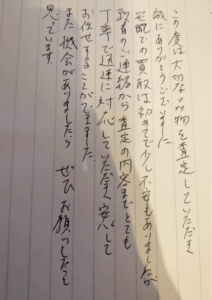 この度は大切な刃物を査定していただき
誠にありがとうございました
宅配での買取は初めてで少し不安もありましたが
数百のご連絡から査定の内容までとても
丁寧で迅速に対応していただき安心して
お任せすることができました
また機会がありましたら ぜひお願いしたいと
思っています